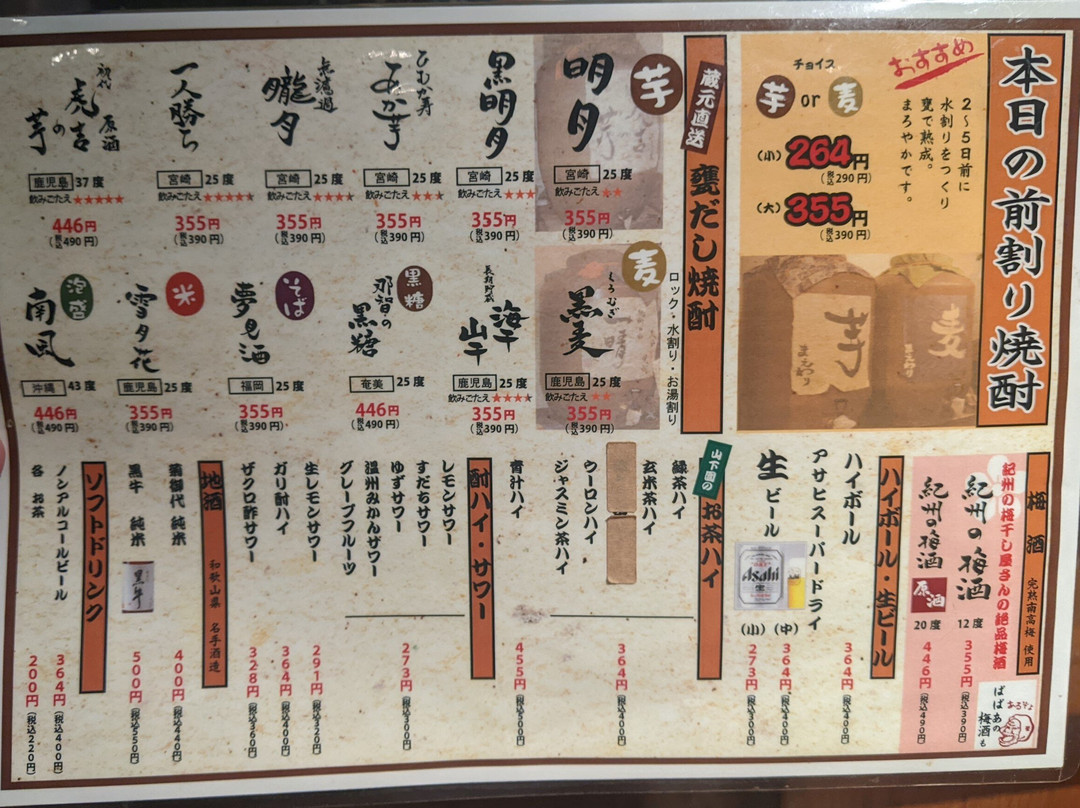 本日の前割り焼酎
おすすめ
2～5日前に
水割りをつくり
甕で熟成。
まろやかです。
チョイス
芋 or 麦
(小) 264円
(税込290円)
(大) 355円
(税込390円)
芋
麦
蔵元直送 甕だし焼酎
ロック・水割り・お湯割り
芋
明月
宮崎 25度
飲みごたえ★★
355円
(税込390円)
黒明月
宮崎 25度
飲みごたえ★★★
355円
(税込390円)
ひむか寿
あか芋
宮崎 25度
飲みごたえ★★★
355円
(税込390円)
無濾過
朧月
宮崎 25度
飲みごたえ★★★★
355円
(税込390円)
一人勝ち
宮崎 25度
飲みごたえ★★★★★
355円
(税込390円)
初代
虎吉の芋
原酒
鹿児島 37度
飲みごたえ★★★★★
446円
(税込490円)
麦
くろむぎ
黒麦
鹿児島 25度
飲みごたえ★★
355円
(税込390円)
長期貯蔵
海千山千
鹿児島 25度
飲みごたえ★★★★
355円
(税込390円)
黒糖
那智の黒糖
奄美 25度
446円
(税込490円)
そば
夢見酒
福岡 25度
355円
(税込390円)
米
雪月花
鹿児島 25度
355円
(税込390円)
泡盛
南風
沖縄 43度
446円
(税込490円)
梅酒 完熟南高梅 使用
紀州の梅干し屋さんの絶品梅酒
紀州の梅酒
12度
355円(税込390円)
紀州の梅酒
原酒
20度
446円(税込490円)
ばばあの梅酒も
あるぞよ
ハイボール・生ビール
ハイボール 364円(税込400円)
アサヒスーパードライ
生ビール
Asahi
生
(中) 364円(税込400円)
(小) 273円(税込300円)
山下園の お茶ハイ
緑茶ハイ
玄米茶ハイ
ウーロンハイ
ジャスミン茶ハイ
364円(税込400円)
青汁ハイ 455円(税込500円)
酎ハイ・サワー
レモンサワー
すだちサワー
ゆずサワー
温州みかんサワー
グレープフルーツ
273円(税込300円)
生レモンサワー 291円(税込320円)
ガリ酎ハイ 364円(税込400円)
ザクロ酢サワー 328円(税込360円)
地酒 和歌山県 名手酒造
菊御代 純米 400円(税込440円)
黒牛 純米 500円(税込550円)
黒牛
ソフトドリンク
ノンアルコールビール 364円(税込400円)
各 お茶 200円(税込220円)